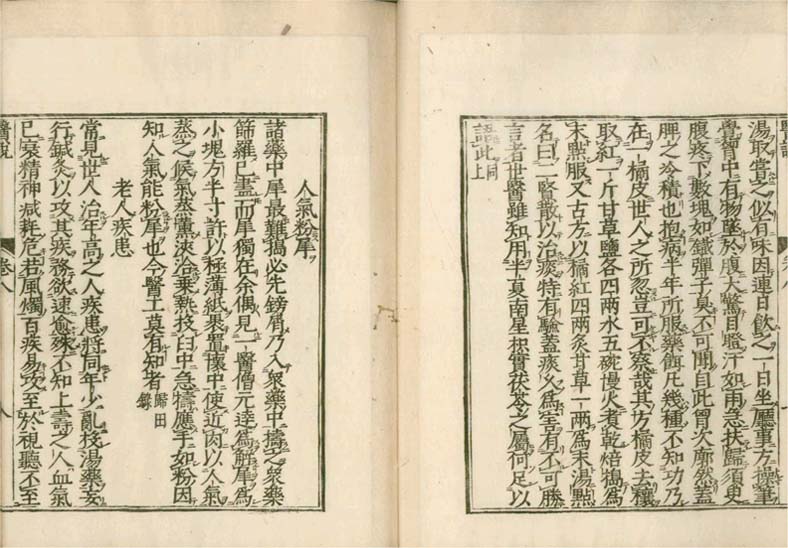 湯取嘗之似有味因連日飲之一日坐廳事方操筆
覺胷中有物墜於腹大驚目瞪汗如雨急扶歸須臾
腹疼下數塊如鐵彈子臭不可聞自此胷次廓然蓋
脾之冷積也抱病半年所服藥餌凡幾種不知功乃
在一橘皮世人之所忽豈可不察哉其方橘皮去穰
取紅一斤甘草鹽各四兩水五碗慢火煮乾焙搗爲
末㸃服又古方以橘紅四兩炙甘草一兩爲末湯㸃
名曰二賢散以治痰特有驗蓋痰久爲害有不可勝
言者世醫雖知用半夏南星枳實茯苓之屬何足以
語此同上
人氣粉犀
諸藥中犀最難搗必先鎊屑乃入衆藥中擣之衆藥
篩羅已盡而犀獨在余偶見一醫僧元達爲解犀爲
小塊方半寸許以極薄紙裹置懷中使近肉以人氣
蒸之候氣蒸薰浹洽乗熱投臼中急擣應手如粉因
知人氣能粉犀也今醫工莫有知者歸田錄
老人疾患
常見世人治年高之人疾患將同年少亂投湯藥妄
行鍼灸以攻其疾務欲速愈殊不知上壽之人血氣
已衰精神減耗危若風燭百疾易攻至於視聽不至
醫說 卷八 八